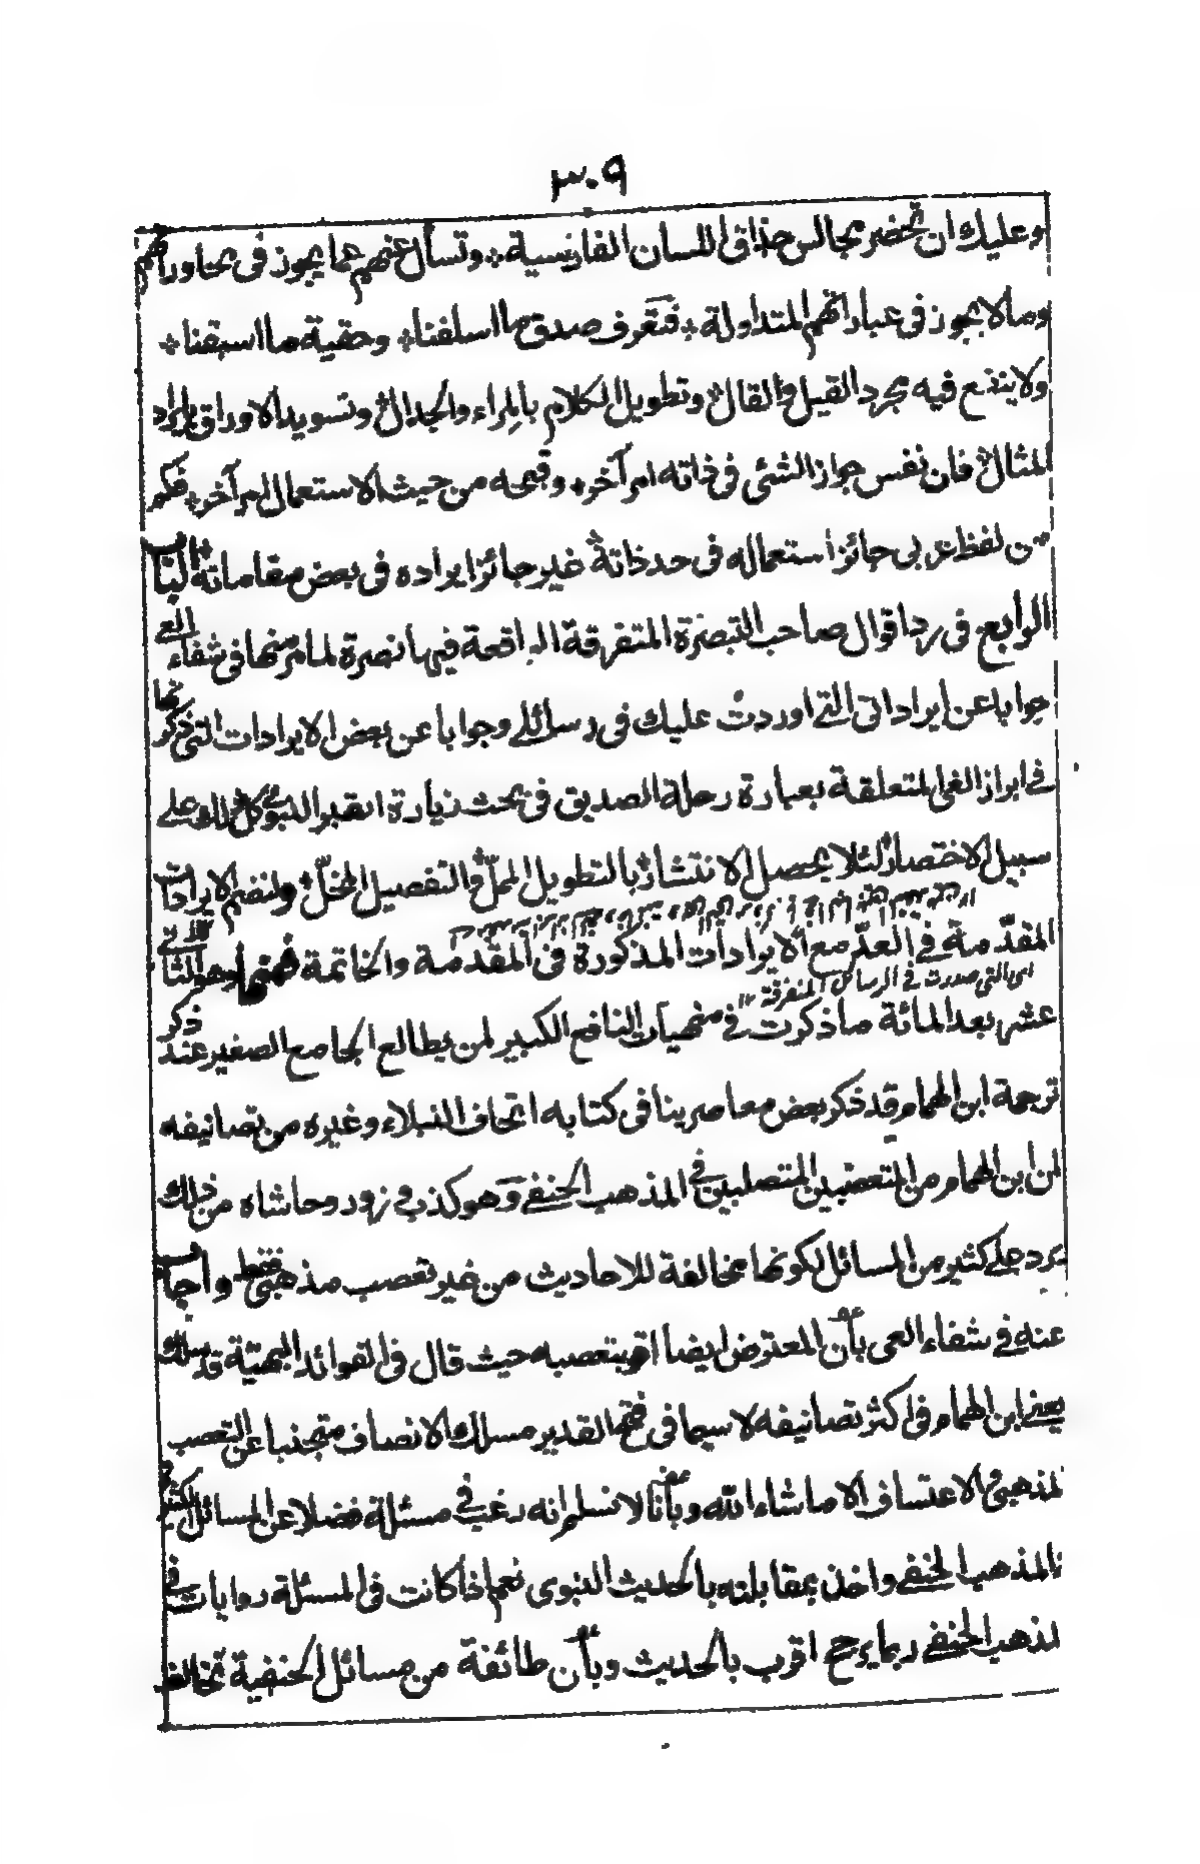 ٣٠٩
وعليك ان تحضر مجالس حذاق اللسان الفارسية * وتسأل عنهم عما يجوز فى محاوراتهم
وما لا يجوز فى عباراتهم المتداولة * فتعرف صدق ما اسلفنا * وحقية ما اسبقنا *
ولا ينفع فيه مجرد القيل والقال وتطويل الكلام بالمراء والجدال وتسويد الاوراق بايراد
المثال فان نفس جواز الشئى فى ذاته امر آخر * وقبحه من حيث الاستعمال امر آخر * فكم
من لفظ عربى جائز استعماله فى حد ذاته غير جائز ايراده فى بعض مقاماته الباب
الرابع فى رد اقوال صاحب التبصرة المتفرقة الواقعة فيها نصرة لما مر منها فى شفاء العى
جوابا عن ايراداتى التے اوردت عليك فى رسائلے وجوابا عن بعض الايرادات التى ذكرتها
فے ابراز الغى المتعلقة بعبارة رحلة الصديق فى بحث زيارة القبر النبوى كل ذلك على
سبيل الاختصار لئلا يحصل الانتشار بالتطويل الممل والتفصيل المخل ولنضم الايرادات
المقدمة فے العد مع الايرادات المذكورة فى المقدمة والخاتمة فمنها وهو الثالث
اى التى صدرت فے الرسائل المتفرقة ١٢
عشر بعد المائة ما ذكرت فے منهيات النافع الكبير لمن يطالع الجامع الصغير عند ذكر
ترجمة ابن الهمام وقد ذكر بعض معاصرينا فى كتابه اتحاف النبلاء وغيره من تصانيفه
ان ابن الهمام من المتعصبين المتصلبين فے المذهب الحنفے وهو كذب وزور وحاشاه من ذلك
يرد علے كثير من المسائل لكونها مخالفة للاحاديث من غير تعصب مذهبى فقط واجاب
عنه فے شفاء العى بأن المعترض ايضا اقر بتعصبه حيث قال فى الفوائد البهية قد سلك
يعنے ابن الهمام فى اكثر تصانيفه لا سيما فى فتح القدير مسلك الانصاف متجنبا عن التعصب
المذهبى والاعتساف الا ما شاء الله وبأنا لا نسلم انه رغب فے مسئلة فضلا عن المسائل الكثيرة
المذهب الحنفے واخذ بمقابلته بالحديث النبوى نعم اذا كانت فى المسئلة روايات فے
مذهب الحنفے ربما يرجح اقرب بالحديث وبأن طائفة من مسائل الحنفية تخالف